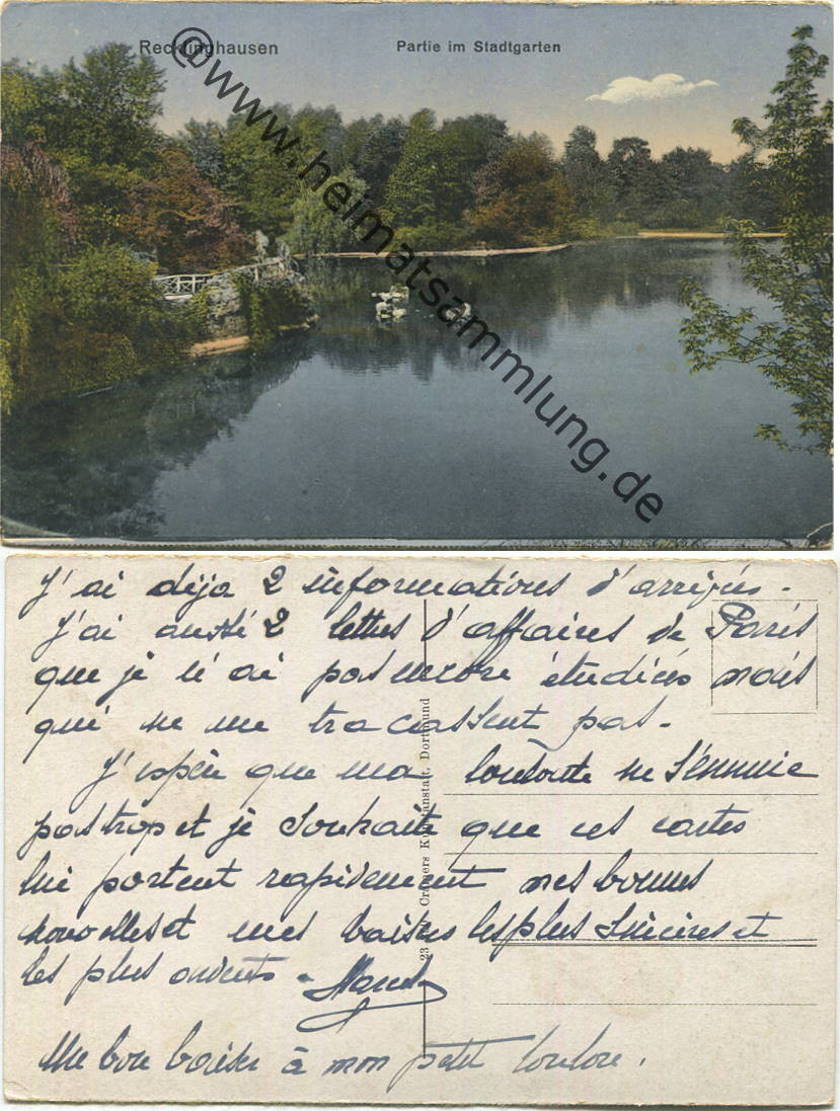 Recklinghausen
Partie im Stadtgarten
@www.heimatsammlung.de
J'ai déja 2 informations d'arrivées.
J'ai aussi 2 lettres d'affaires de Paris
que je n'ai pas encore étudiées mais
qui ne me tracassent pas.
J'espère que ma louloute ne s'ennuie
pas trop et je souhaite que ces cartes
lui portent rapidement mes bonnes
nouvelles et mes baisers les plus sincères et
les plus ardents. Marcel
Un bon baiser à mon petit loulou.
23 Cramers Kunstanstalt, Dortmund